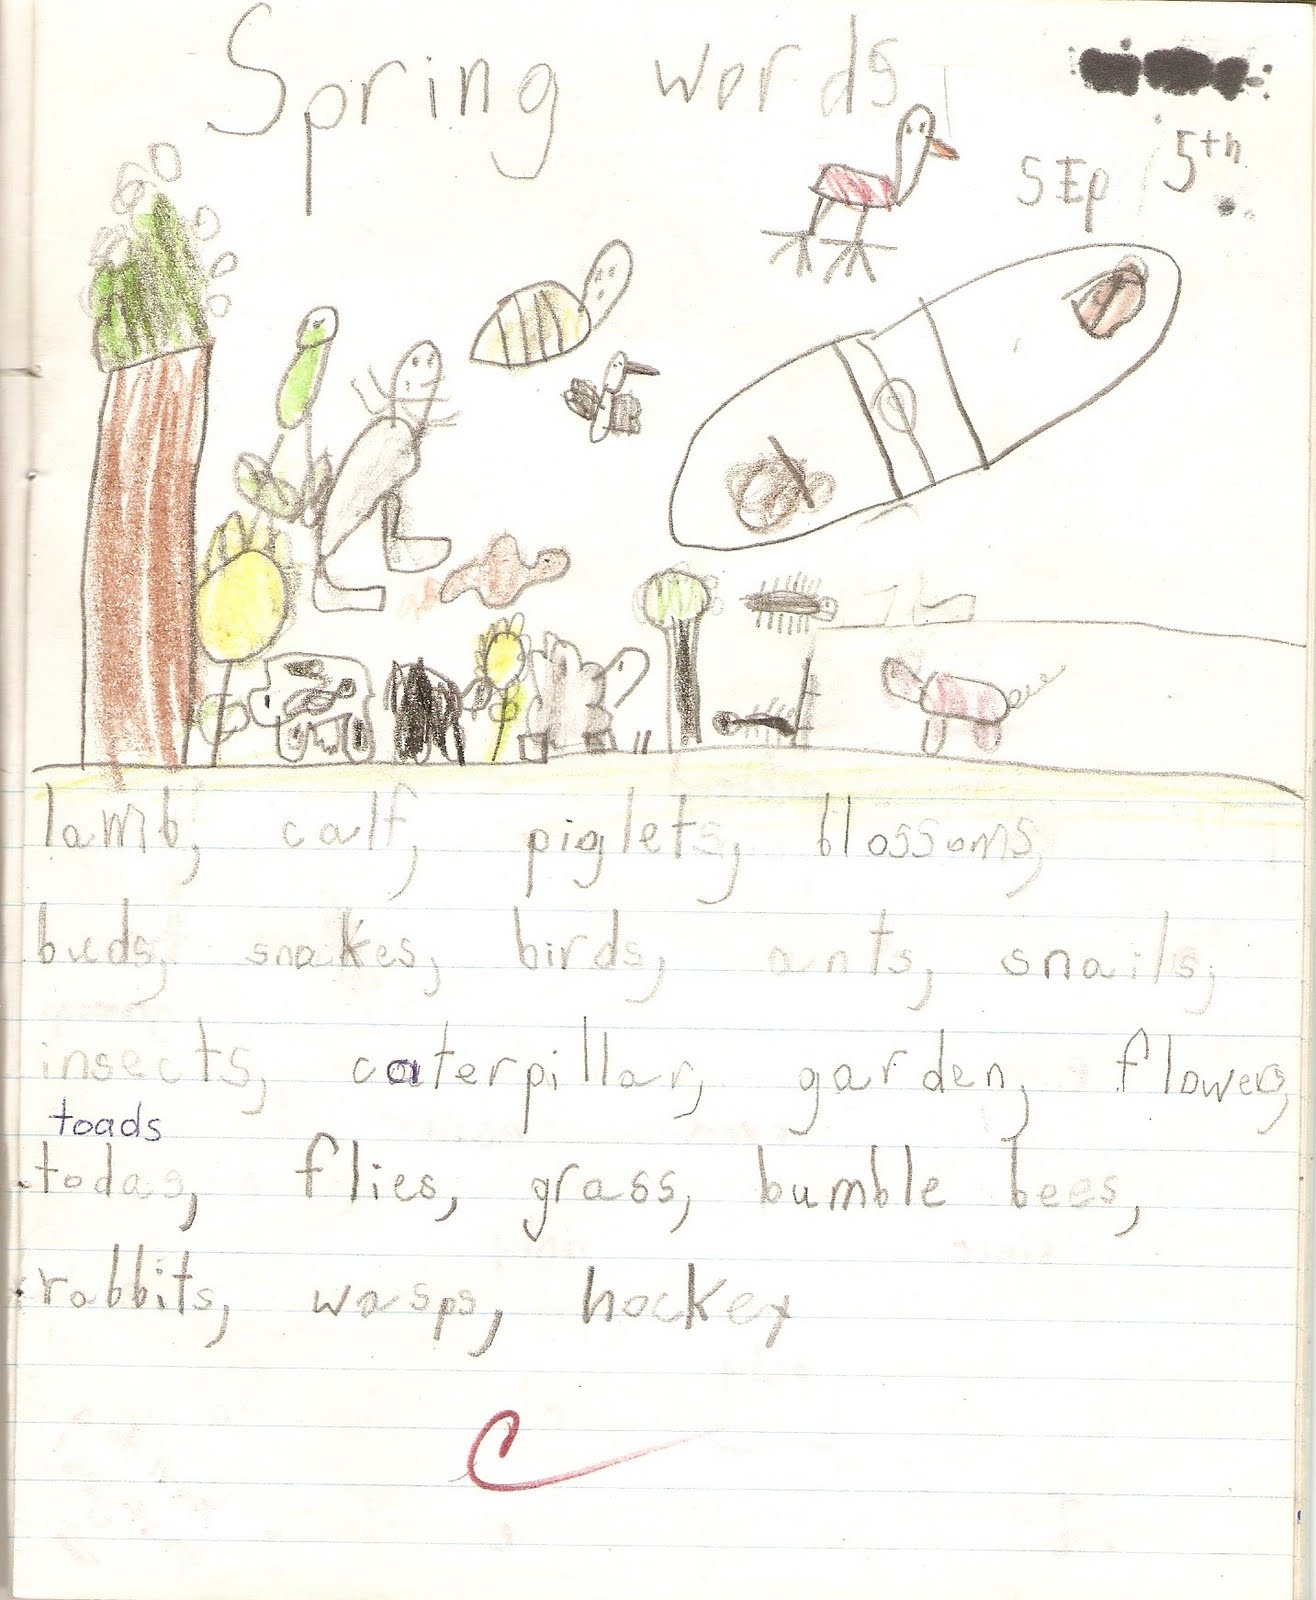 Spring words
SEp 5th
lamb, calf, piglets, blossoms,
buds, snakes, birds, ants, snails,
insects, caterpillar, garden, flowers,
toads
todas, flies, grass, bumble bees,
rabbits, wasps, hockey
C